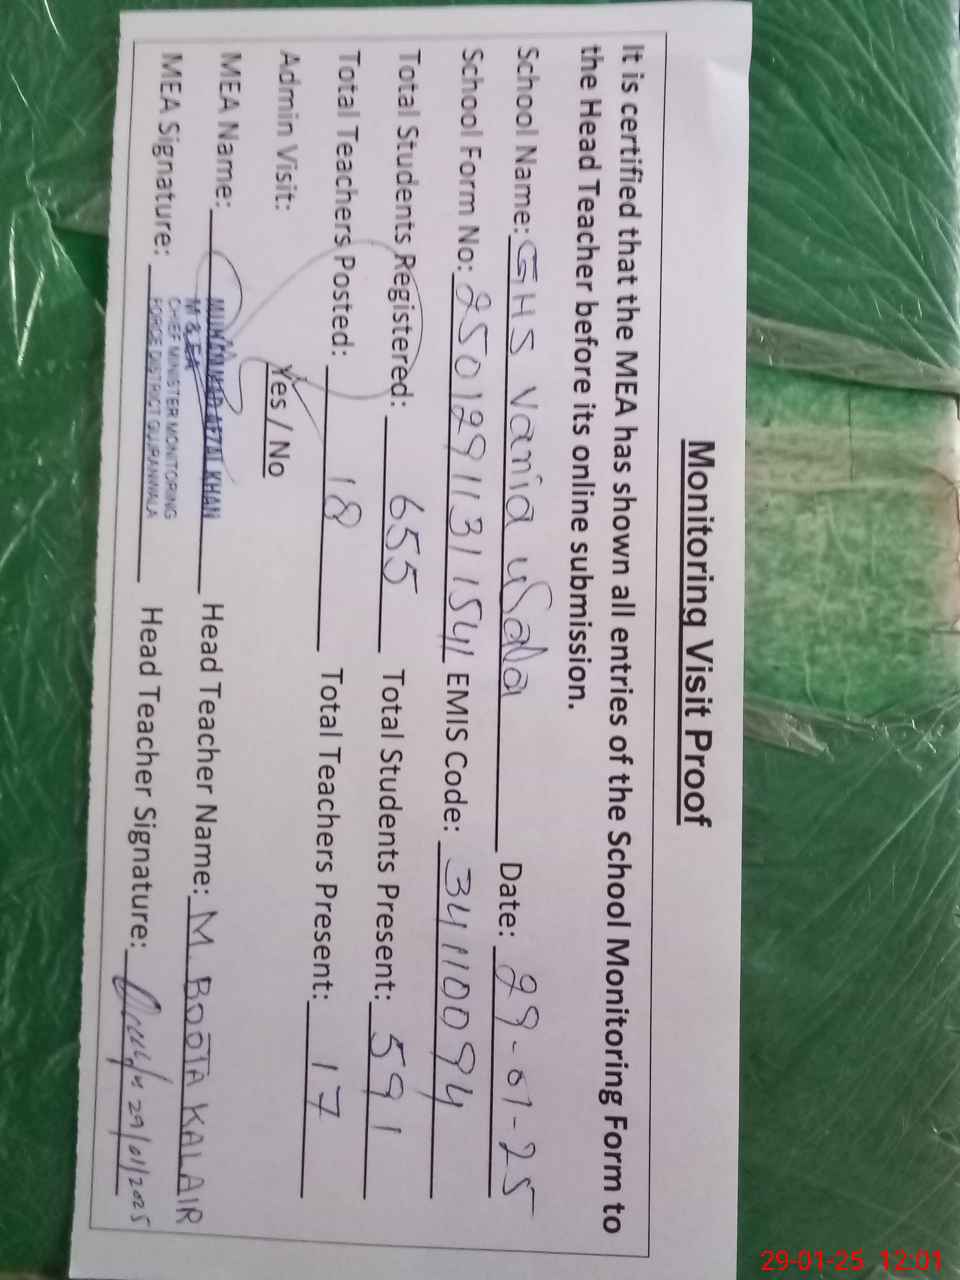 Monitoring Visit Proof
It is certified that the MEA has shown all entries of the School Monitoring Form to
the Head Teacher before its online submission.
School Name: GHS Vania wala Date: 29-01-25
School Form No: 25012911311541 EMIS Code: 34110094
Total Students Registered: 655 Total Students Present: 591
Total Teachers Posted: 18 Total Teachers Present: 17
Admin Visit: Yes / No
MEA Name: MUHAMMAD AFZAL KHAN Head Teacher Name: M. BOOTA KALAIR
M & EA
MEA Signature: CHIEF MINISTER MONITORING
FORCE DISTRICT GUJRANWALA Head Teacher Signature: 29/01/2025
29-01-25 12:01